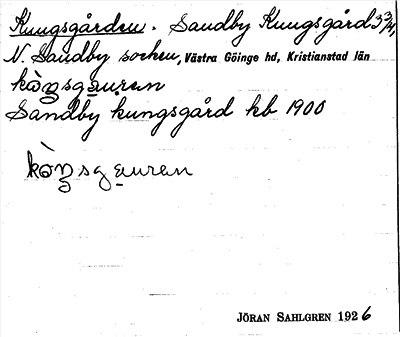 Kungsgården. Sandby Kungsgård 3 3/4,
N. Sandby socken, Västra Göinge hd, Kristianstad län
kòŋsgæuren
Sandby kungsgård kb 1900
kòŋsgæuren
JÖRAN SAHLGREN 1926